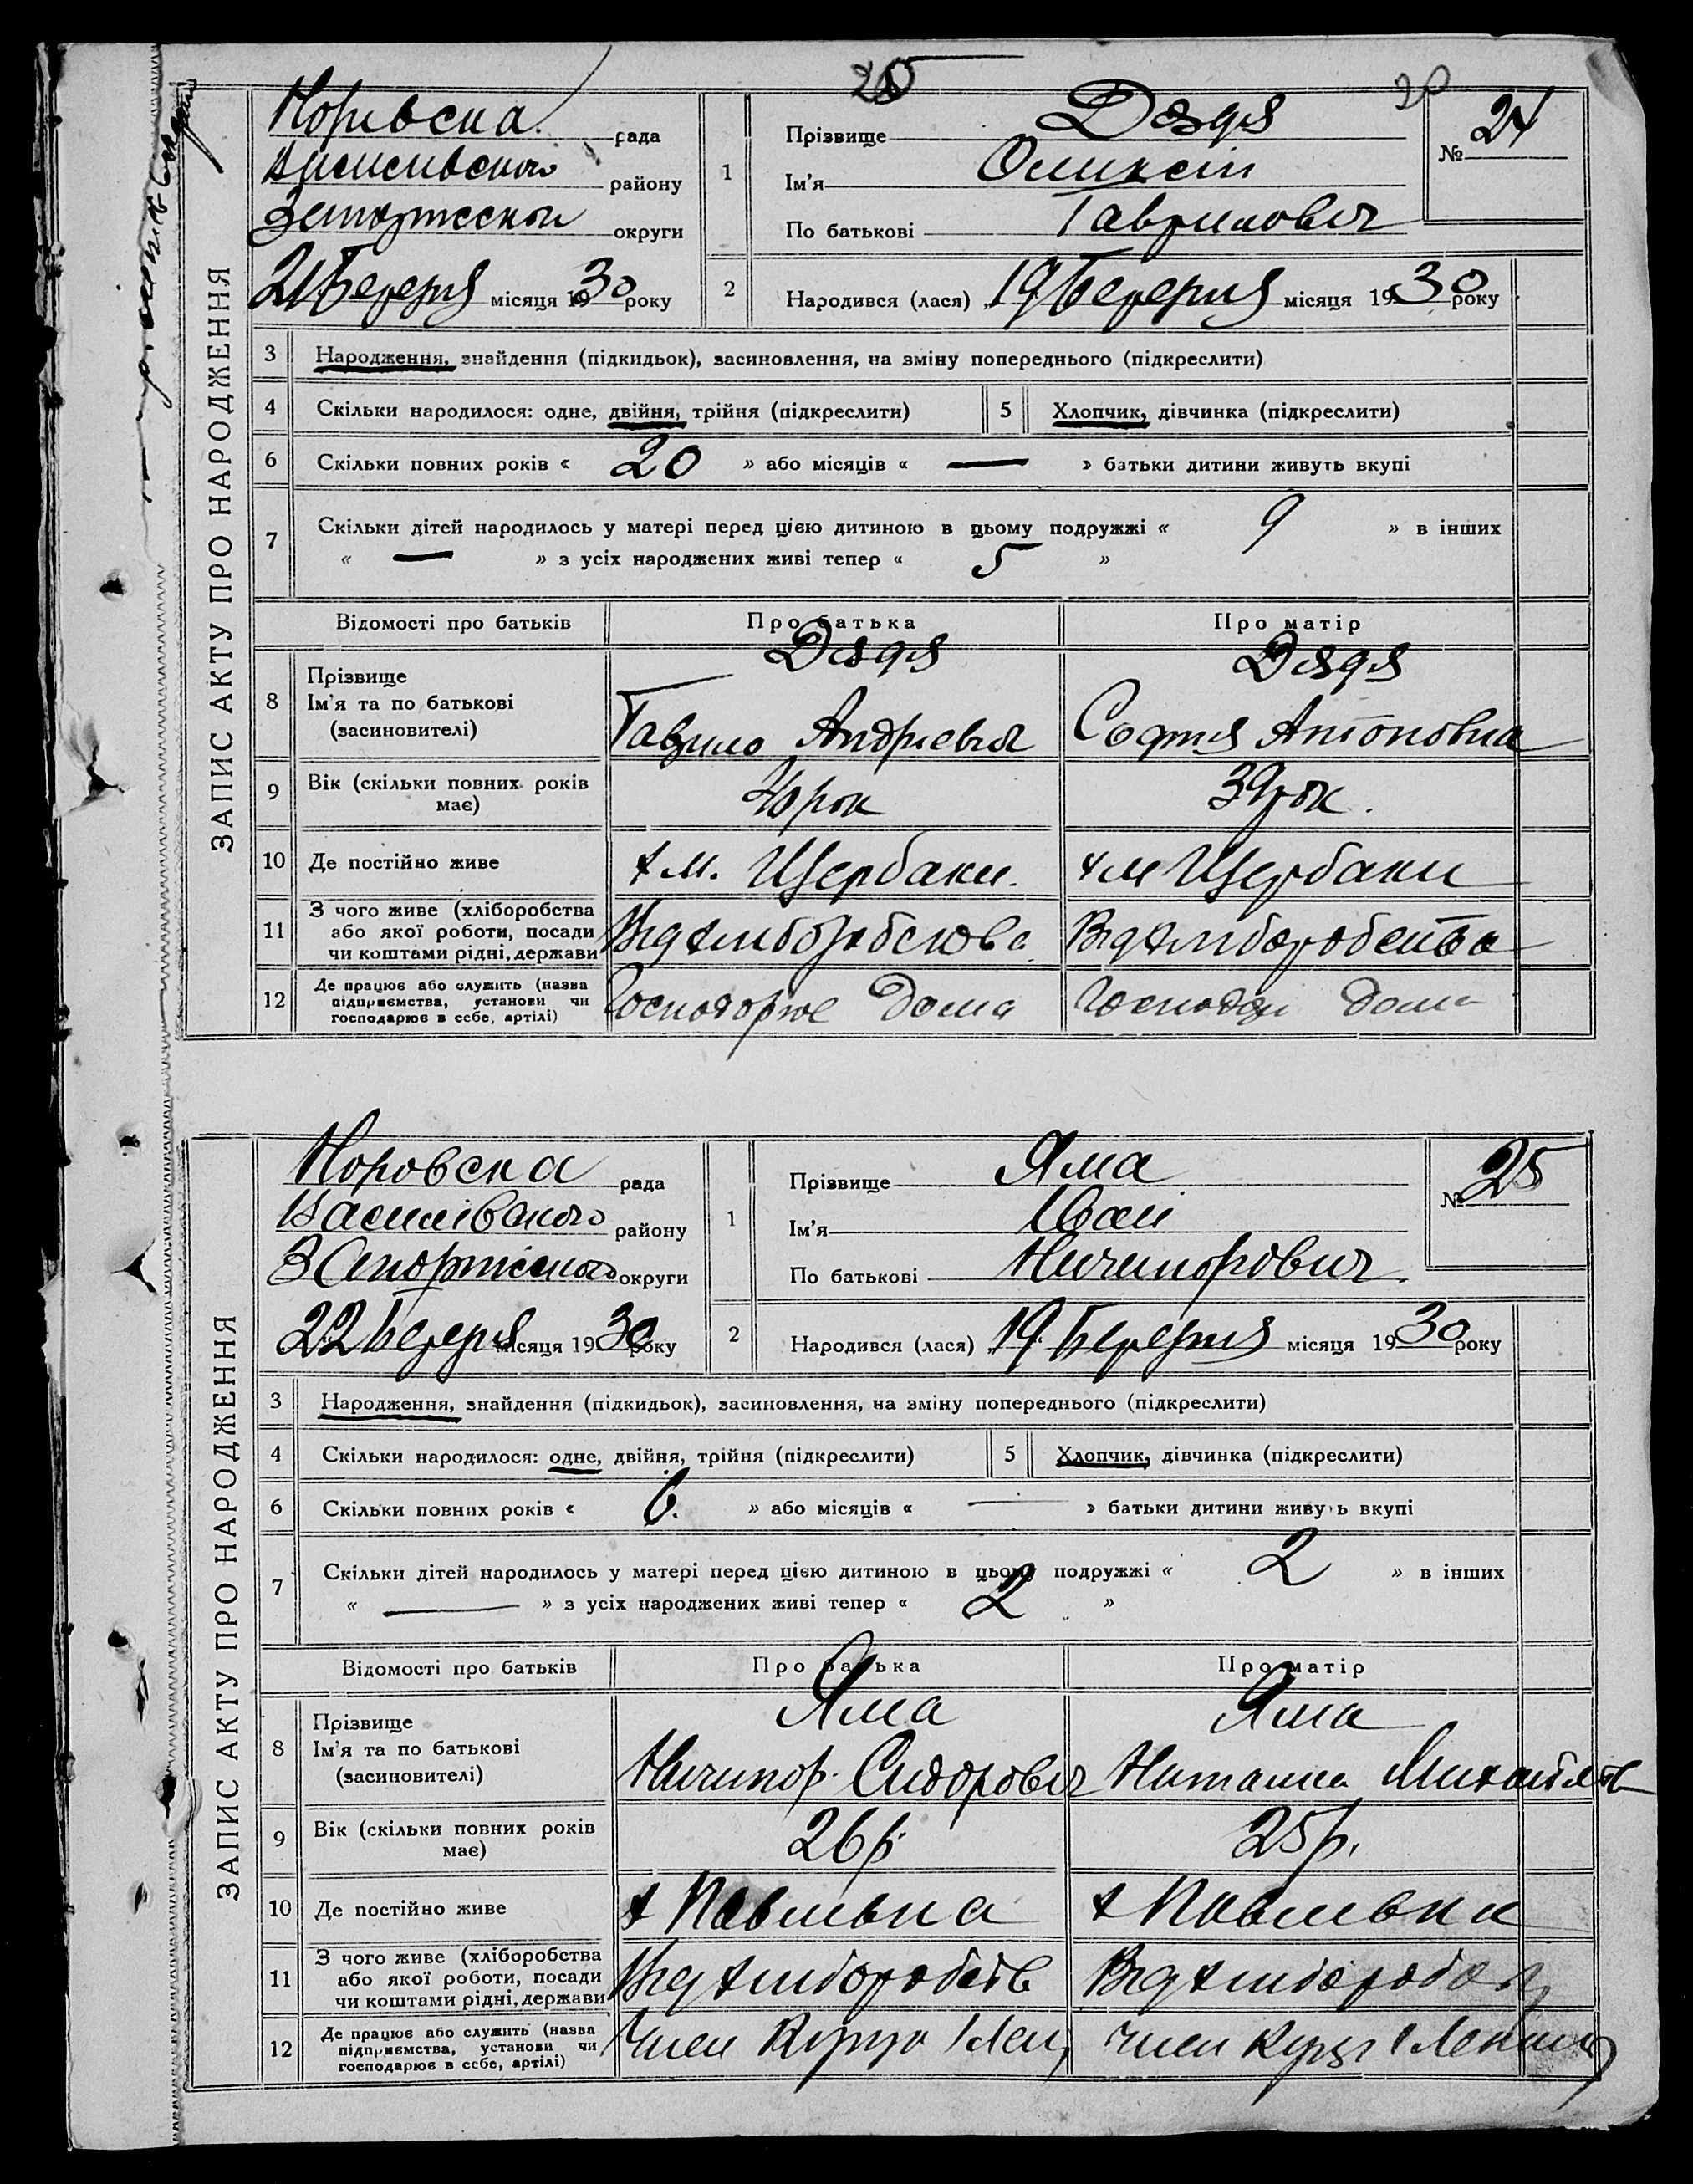 20
24
ЗАПИС АКТУ ПРО НАРОДЖЕННЯ
рада
району
округи
21 Березня місяця 1930 року
1
Прізвище Дзядя
Ім'я Олексій
По батькові Гаврилович
№ 24
2
Народився (лася) „19 Березня місяця 1930 року
3 Народження, знайдення (підкидьок), засиновлення, на зміну попереднього (підкреслити)
4 Скільки народилося: одне, двійня, трійня (підкреслити)
5 Хлопчик, дівчинка (підкреслити)
6 Скільки повних років « 20 » або місяців « — » батьки дитини живуть вкупі
7 Скільки дітей народилось у матері перед цією дитиною в цьому подружжі « 9 » в інших
« — » з усіх народжених живі тепер « 5 »
Відомості про батьків Про батька Про матір
8 Прізвище
Ім'я та по батькові
(засиновителі)
Гаврило Андрієвич
Софія Антоновна
9 Вік (скільки повних років
має)
39 рок.
10 Де постійно живе
х м. Щербаки.
х м Щербаки
11 З чого живе (хліборобства
або якої роботи, посади
чи коштами рідні, держави
Від хліборобства
12 Де працює або служить (назва
підприємства, установи чи
господарює в себе, артілі)
Господорює дома
дома
ЗАПИС АКТУ ПРО НАРОДЖЕННЯ
рада
Василівського району
округи
22 Березня місяця 1930 року
1
Прізвище Яма
Ім'я Іван
По батькові Ничипорович
№ 25
2
Народився (лася) „19 Березня місяця 1930 року
3 Народження, знайдення (підкидьок), засиновлення, на зміну попереднього (підкреслити)
4 Скільки народилося: одне, двійня, трійня (підкреслити)
5 Хлопчик, дівчинка (підкреслити)
6 Скільки повних років « 6. » або місяців « — » батьки дитини живуть вкупі
7 Скільки дітей народилось у матері перед цією дитиною в цьому подружжі « 2 » в інших
« — » з усіх народжених живі тепер « 2 »
Відомості про батьків Про батька Про матір
8 Прізвище
Ім'я та по батькові
(засиновителі)
Яма
Ничипор Сидорович
Яма
Наталка
9 Вік (скільки повних років
має)
26 р.
25 р.
10 Де постійно живе
х Павлівка
х Павлівка
11 З чого живе (хліборобства
або якої роботи, посади
чи коштами рідні, держави
Від хліборобств
12 Де працює або служить (назва
підприємства, установи чи
господарює в себе, артілі)
Член
Член